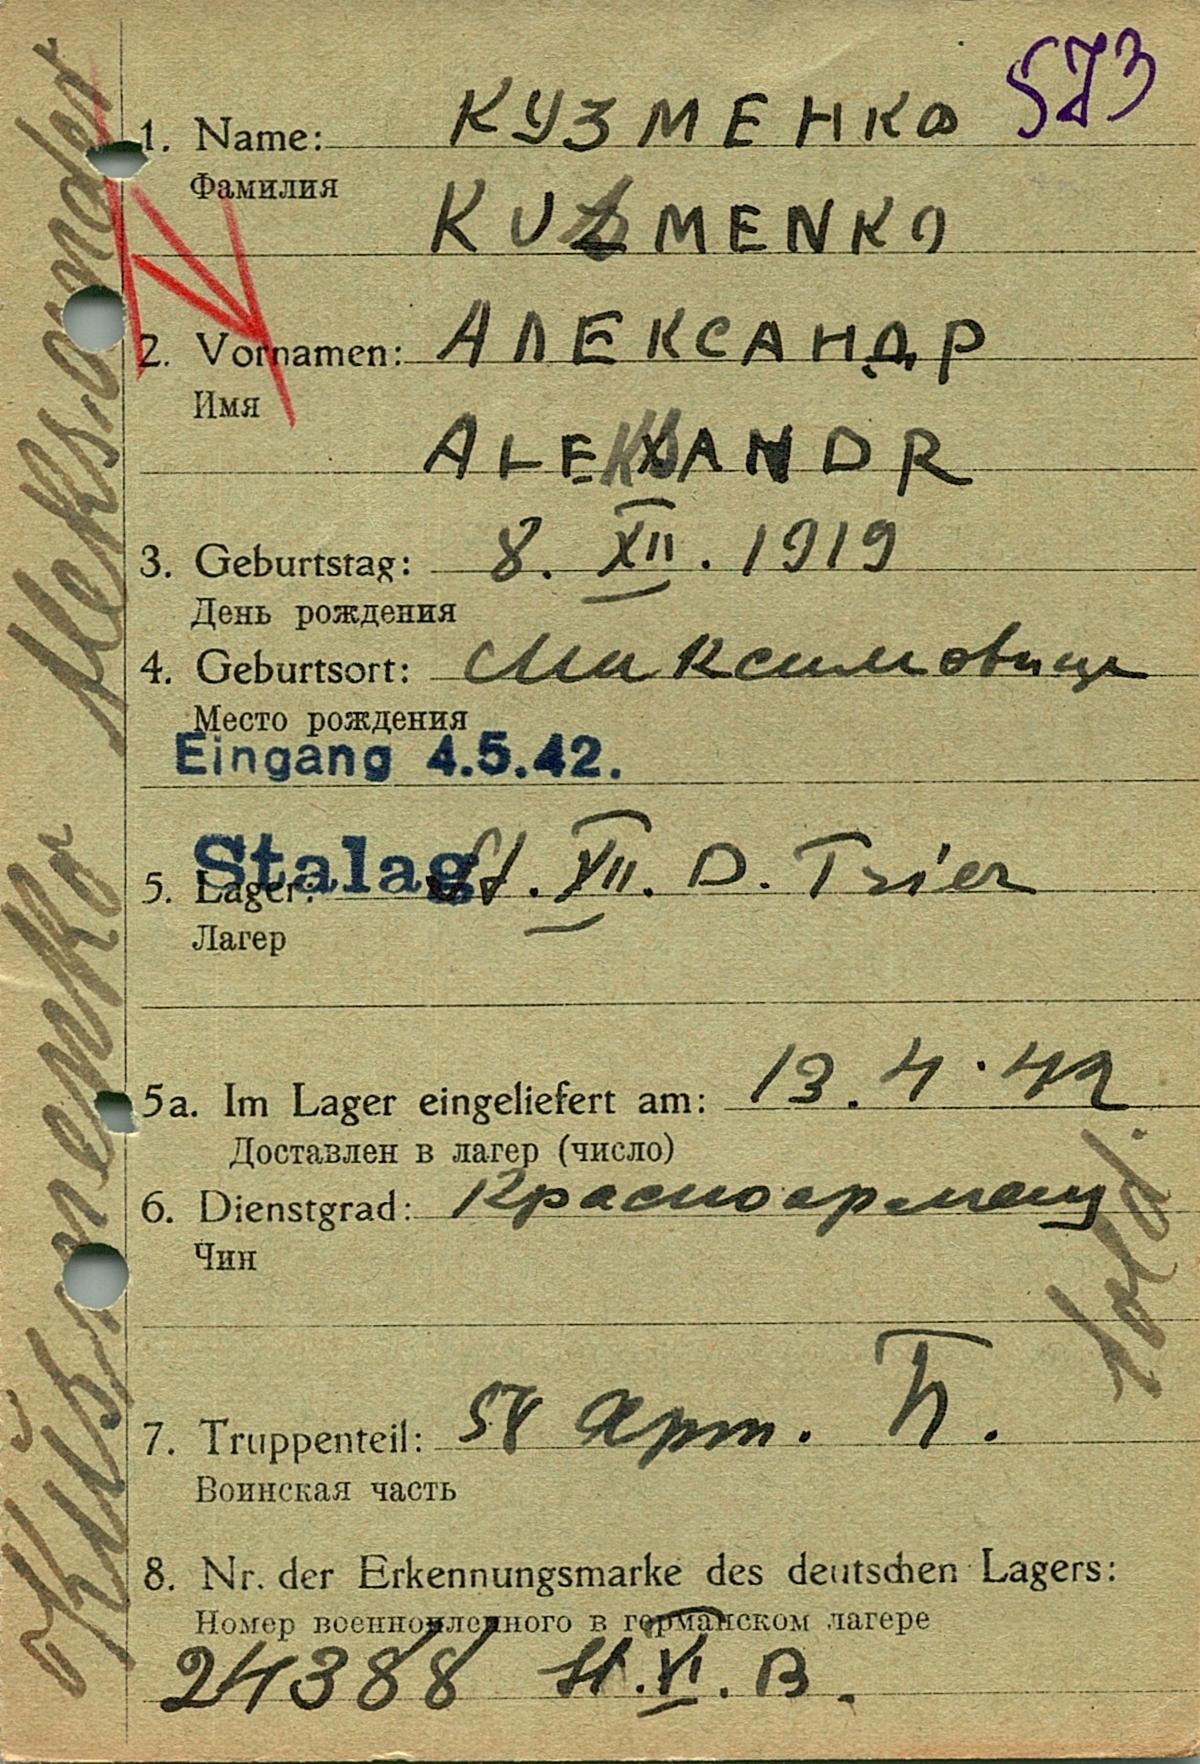 573
1. Name: КУЗМЕНКО
Фамилия
KUZMENKO
2. Vornamen: АЛЕКСАНДР
Имя
ALEKSANDR
3. Geburtstag: 8. XII. 1919
День рождения
4. Geburtsort:
Место рождения
Eingang 4.5.42.
Stalag
5. Lager: St. XII. D. Trier
Лагер
5a. Im Lager eingeliefert am: 13. 4. 42
Доставлен в лагер (число)
6. Dienstgrad: Красноармеец
Чин
Sold.
7. Truppenteil: 58 Арт. П.
Воинская часть
8. Nr. der Erkennungsmarke des deutschen Lagers:
Номер военнопленного в германском лагере
24388 St. VI. B.
Kusmenko Aleksander